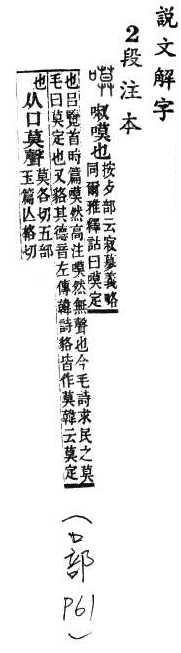 說文解字
2段注本
嗼 𠴫嗼也 按歺部云寂募義略
同爾雅釋詁曰嗼定
也呂覽首時篇嗼然高注嗼然無聲也今毛詩求民之莫
毛曰莫定也又貉其德音左傳韓詩貉皆作莫韓云莫定
也
从口莫聲 莫各切五部
玉篇亾格切
(口部 P61)